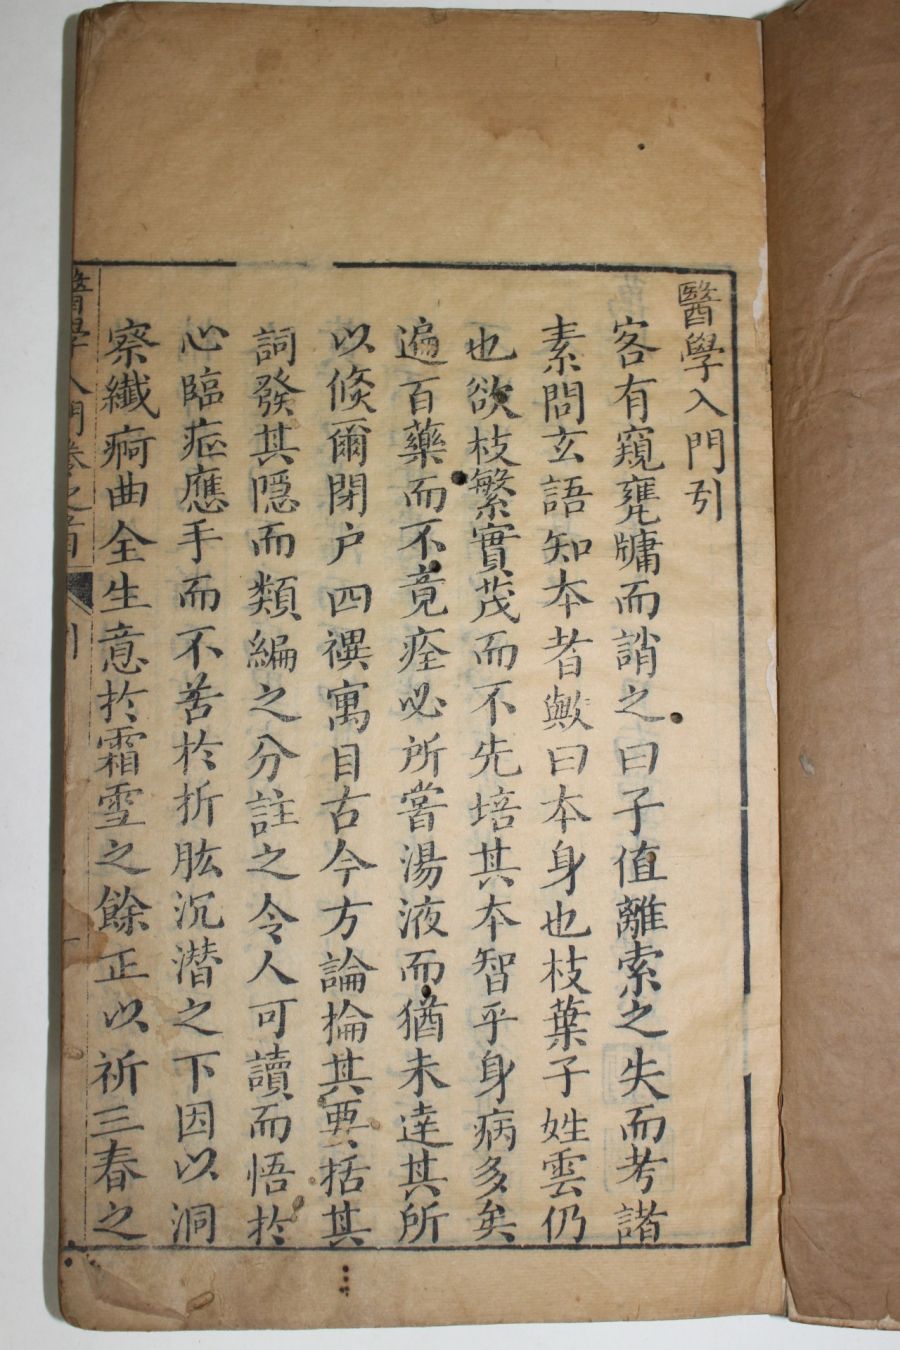 醫學入門引
客有窺甕牖而誚之曰子值離索之失而考諸
素問玄語知本者歟曰本身也枝葉子姓雲仍
也欲枝繁實茂而不先培其本智乎身病多矣
遍百藥而不竟痊必所嘗湯液而猶未達其所
以倐爾閉户四禩寓目古今方論掄其要括其
詞發其隱而類編之分註之令人可讀而悟於
心臨症應手而不苦於折肱沉潛之下因以洞
察纎痾曲全生意於霜雪之餘正以祈三春之
醫學入門卷之首 引 一